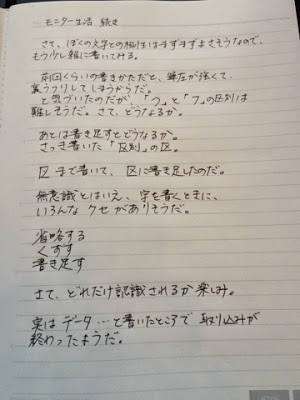 モニター生活 続き
さて、ぼくの文字との相性はまずまずよさそうなので、
もう少し雑に書いてみる。
前回くらいの書きかただと、筆圧が強くて、
裏うつりしてしまうからだ。
と気づいたのだが、「つ」と「フ」の区別は
難しそうだ。さて、どうなるか。
あとは書き足すとどうなるか。
さっき書いた「区別」の区。
区まで書いて、区に書き足したのだ。
無意識とはいえ、字を書くときに、
いろんなクセがありそうだ。
省略する
くずす
書き足す
さて、どれだけ認識されるか楽しみ。
実はデータ…と書いたところで取り込みが
終わったようだ。